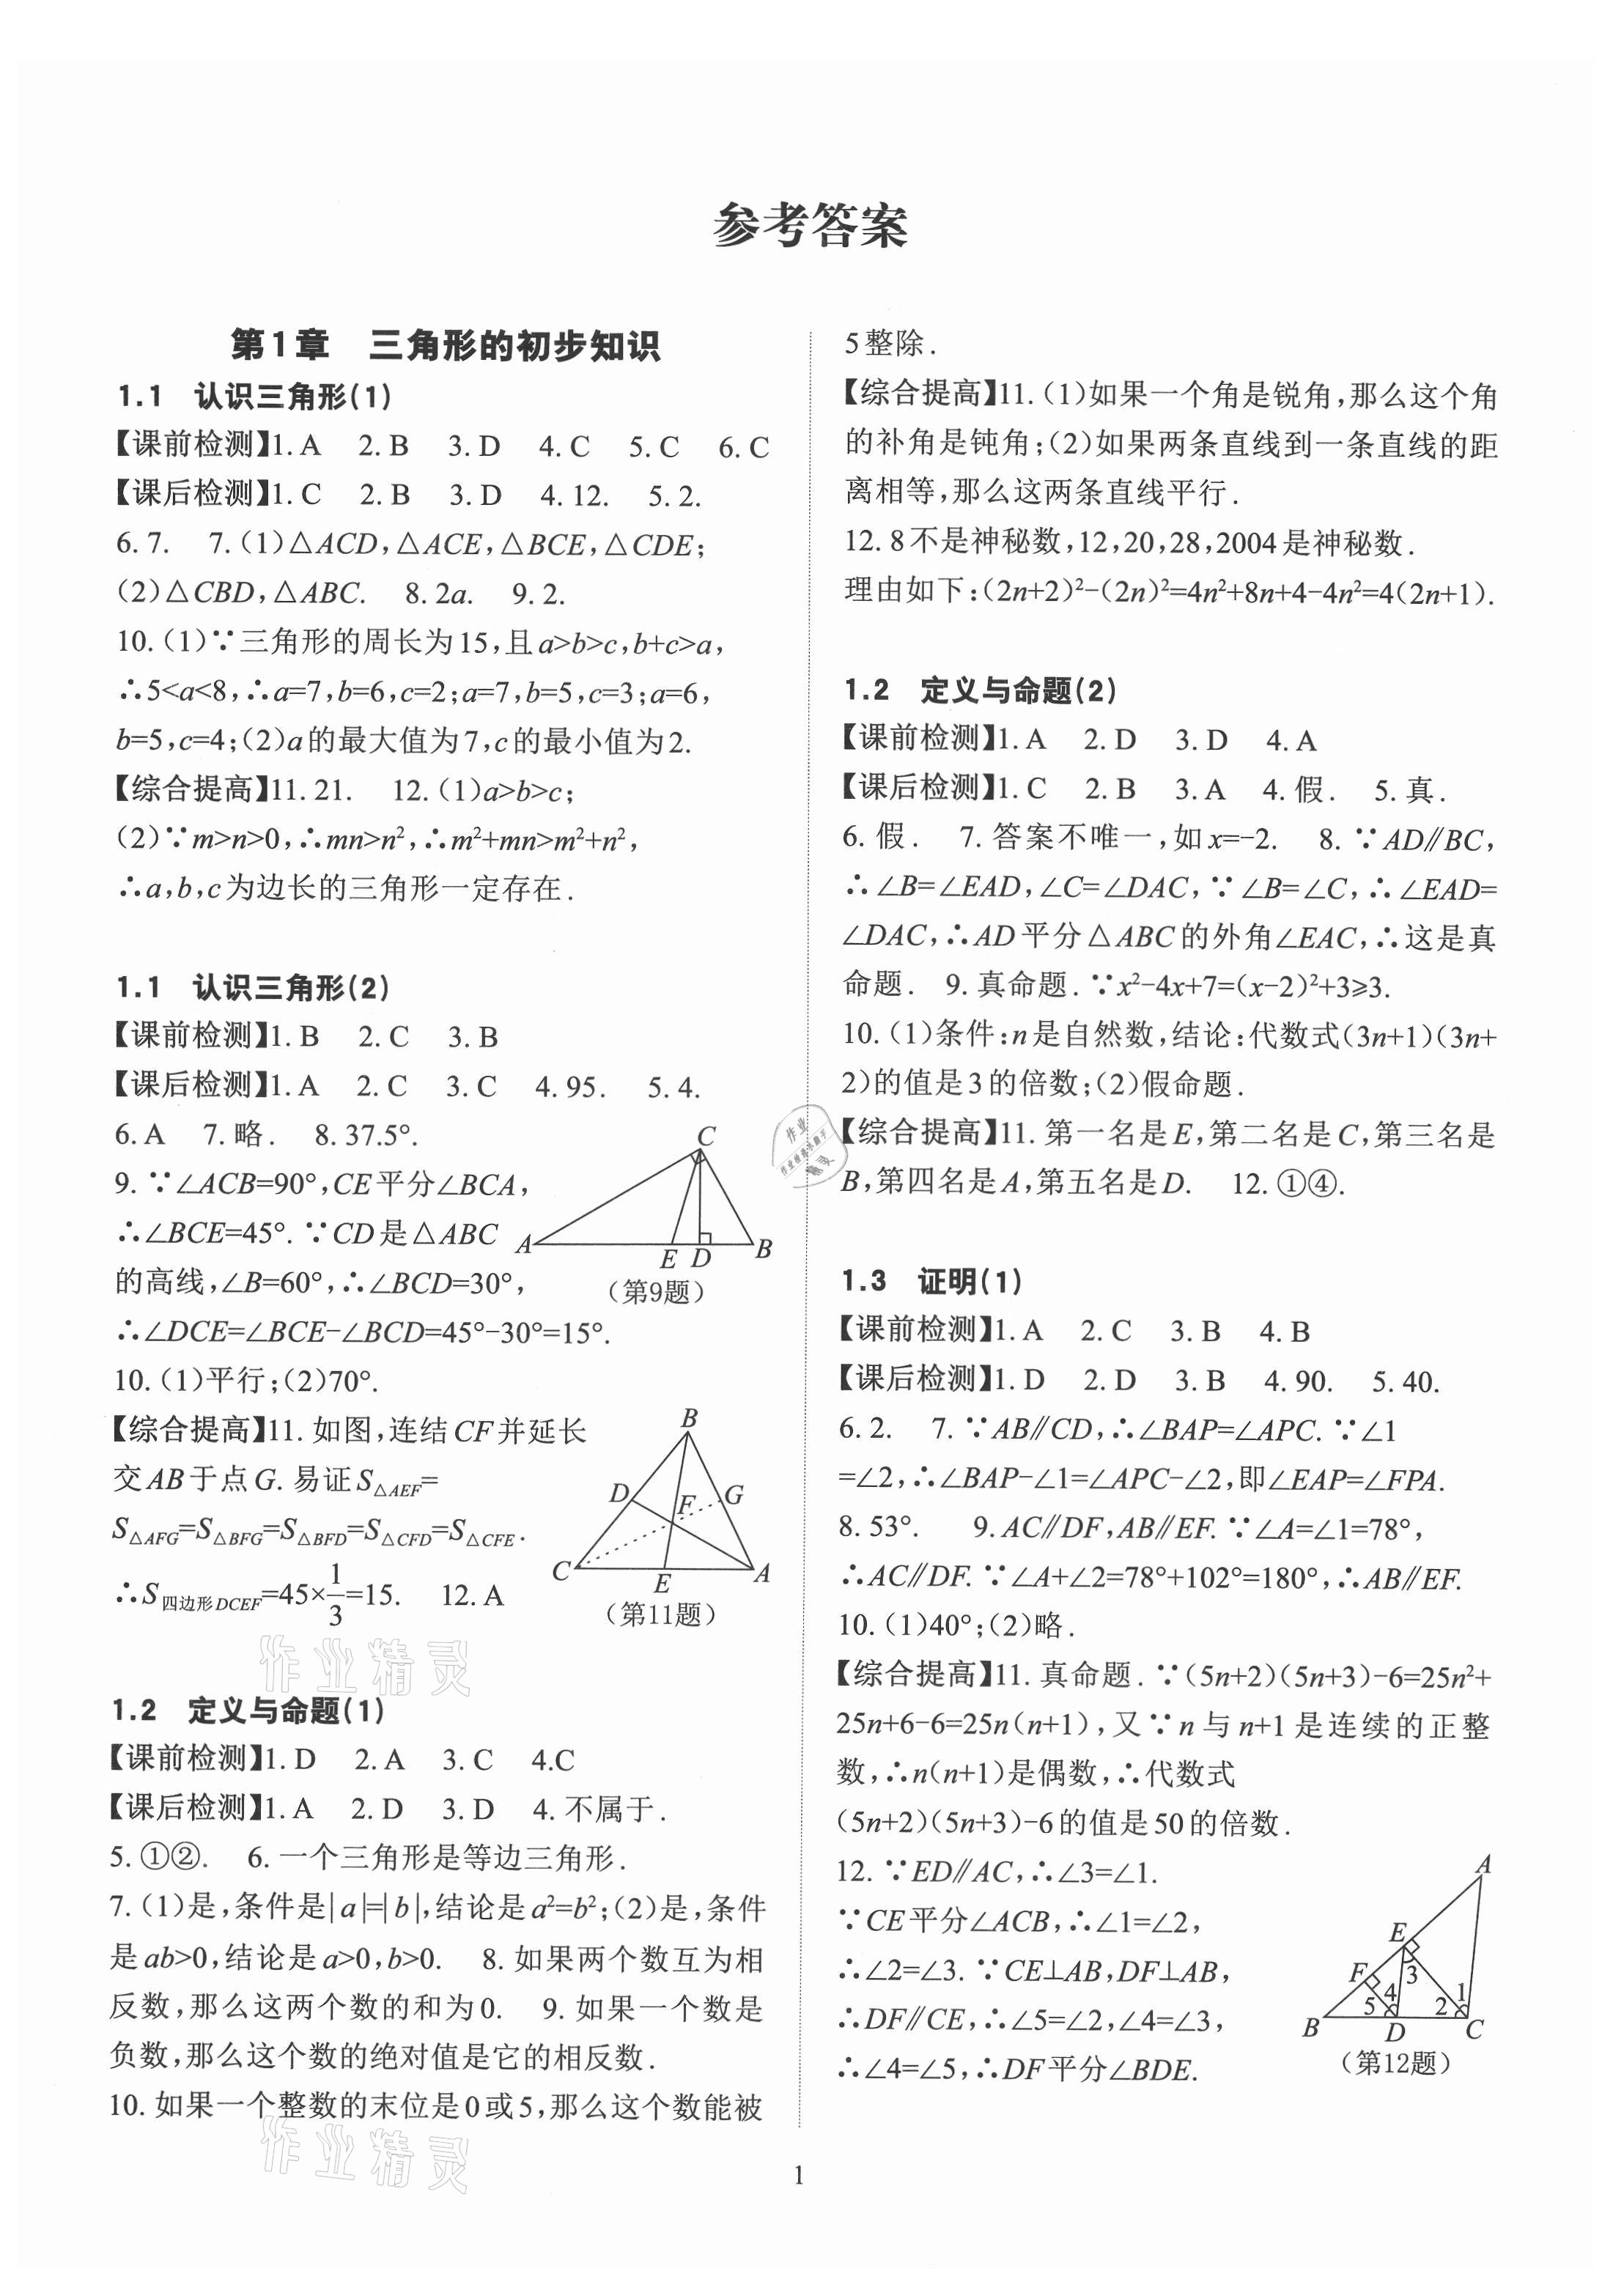 参考答案
第1章 三角形的初步知识
1.1 认识三角形(1)
【课前检测】1. A 2. B 3. D 4. C 5. C 6. C
【课后检测】1. C 2. B 3. D 4. 12. 5. 2.
6. 7. 7. (1)△ACD,△ACE,△BCE,△CDE;
(2)△CBD,△ABC. 8. 2a. 9. 2.
10. (1)∵三角形的周长为15,且a>b>c,b+c>a,
∴5<a<8,∴a=7,b=6,c=2;a=7,b=5,c=3;a=6,
b=5,c=4;(2)a的最大值为7,c的最小值为2.
【综合提高】11. 21. 12. (1)a>b>c;
(2)∵m>n>0,∴mn>n²,∴m²+mn>m²+n²,
∴a,b,c为边长的三角形一定存在.
1.1 认识三角形(2)
【课前检测】1. B 2. C 3. B
【课后检测】1. A 2. C 3. C 4. 95. 5. 4.
6. A 7. 略. 8. 37.5°.
9. ∵∠ACB=90°,CE平分∠BCA,
∴∠BCE=45°. ∵CD是△ABC
的高线,∠B=60°,∴∠BCD=30°,
∴∠DCE=∠BCE-∠BCD=45°-30°=15°.
C
A
E D B
(第9题)
10. (1)平行;(2)70°.
【综合提高】11. 如图,连结CF并延长
交AB于点G. 易证S△AEF=
S△AFG=S△BFG=S△BFD=S△CFD=S△CFE.
∴S四边形DCEF=45×1/3=15. 12. A
B
D F G
C E A
(第11题)
作业精灵
1.2 定义与命题(1)
【课前检测】1. D 2. A 3. C 4.C
【课后检测】1. A 2. D 3. D 4. 不属于.
5. ①②. 6. 一个三角形是等边三角形.
7. (1)是,条件是|a|=|b|,结论是a²=b²;(2)是,条件
是ab>0,结论是a>0,b>0. 8. 如果两个数互为相
反数,那么这两个数的和为0. 9. 如果一个数是
负数,那么这个数的绝对值是它的相反数.
10. 如果一个整数的末位是0或5,那么这个数能被
作业精灵
5整除.
【综合提高】11. (1)如果一个角是锐角,那么这个角
的补角是钝角;(2)如果两条直线到一条直线的距
离相等,那么这两条直线平行.
12. 8不是神秘数,12,20,28,2004是神秘数.
理由如下:(2n+2)²-(2n)²=4n²+8n+4-4n²=4(2n+1).
1.2 定义与命题(2)
【课前检测】1. A 2. D 3. D 4. A
【课后检测】1. C 2. B 3. A 4. 假. 5. 真.
6. 假. 7. 答案不唯一,如x=-2. 8. ∵AD∥BC,
∴∠B=∠EAD,∠C=∠DAC,∵∠B=∠C,∴∠EAD=
∠DAC,∴AD平分△ABC的外角∠EAC,∴这是真
命题. 9. 真命题. ∵x²-4x+7=(x-2)²+3⩾3.
10. (1)条件:n是自然数,结论:代数式(3n+1)(3n+
2)的值是3的倍数;(2)假命题.
【综合提高】11. 第一名是E,第二名是C,第三名是
B,第四名是A,第五名是D. 12. ①④.
1.3 证明(1)
【课前检测】1. A 2. C 3. B 4. B
【课后检测】1. D 2. D 3. B 4. 90. 5. 40.
6. 2. 7. ∵AB∥CD,∴∠BAP=∠APC. ∵∠1
=∠2,∴∠BAP-∠1=∠APC-∠2,即∠EAP=∠FPA.
8. 53°. 9. AC∥DF,AB∥EF. ∵∠A=∠1=78°,
∴AC∥DF. ∵∠A+∠2=78°+102°=180°,∴AB∥EF.
10. (1)40°;(2)略.
【综合提高】11. 真命题. ∵(5n+2)(5n+3)-6=25n²+
25n+6-6=25n(n+1),又∵n与n+1是连续的正整
数,∴n(n+1)是偶数,∴代数式
(5n+2)(5n+3)-6的值是50的倍数.
12. ∵ED∥AC,∴∠3=∠1.
∵CE平分∠ACB,∴∠1=∠2,
∴∠2=∠3. ∵CE⊥AB,DF⊥AB,
∴DF∥CE,∴∠5=∠2,∠4=∠3,
∴∠4=∠5,∴DF平分∠BDE.
A
E
F 3
5 4 2 1
B D C
(第12题)
1